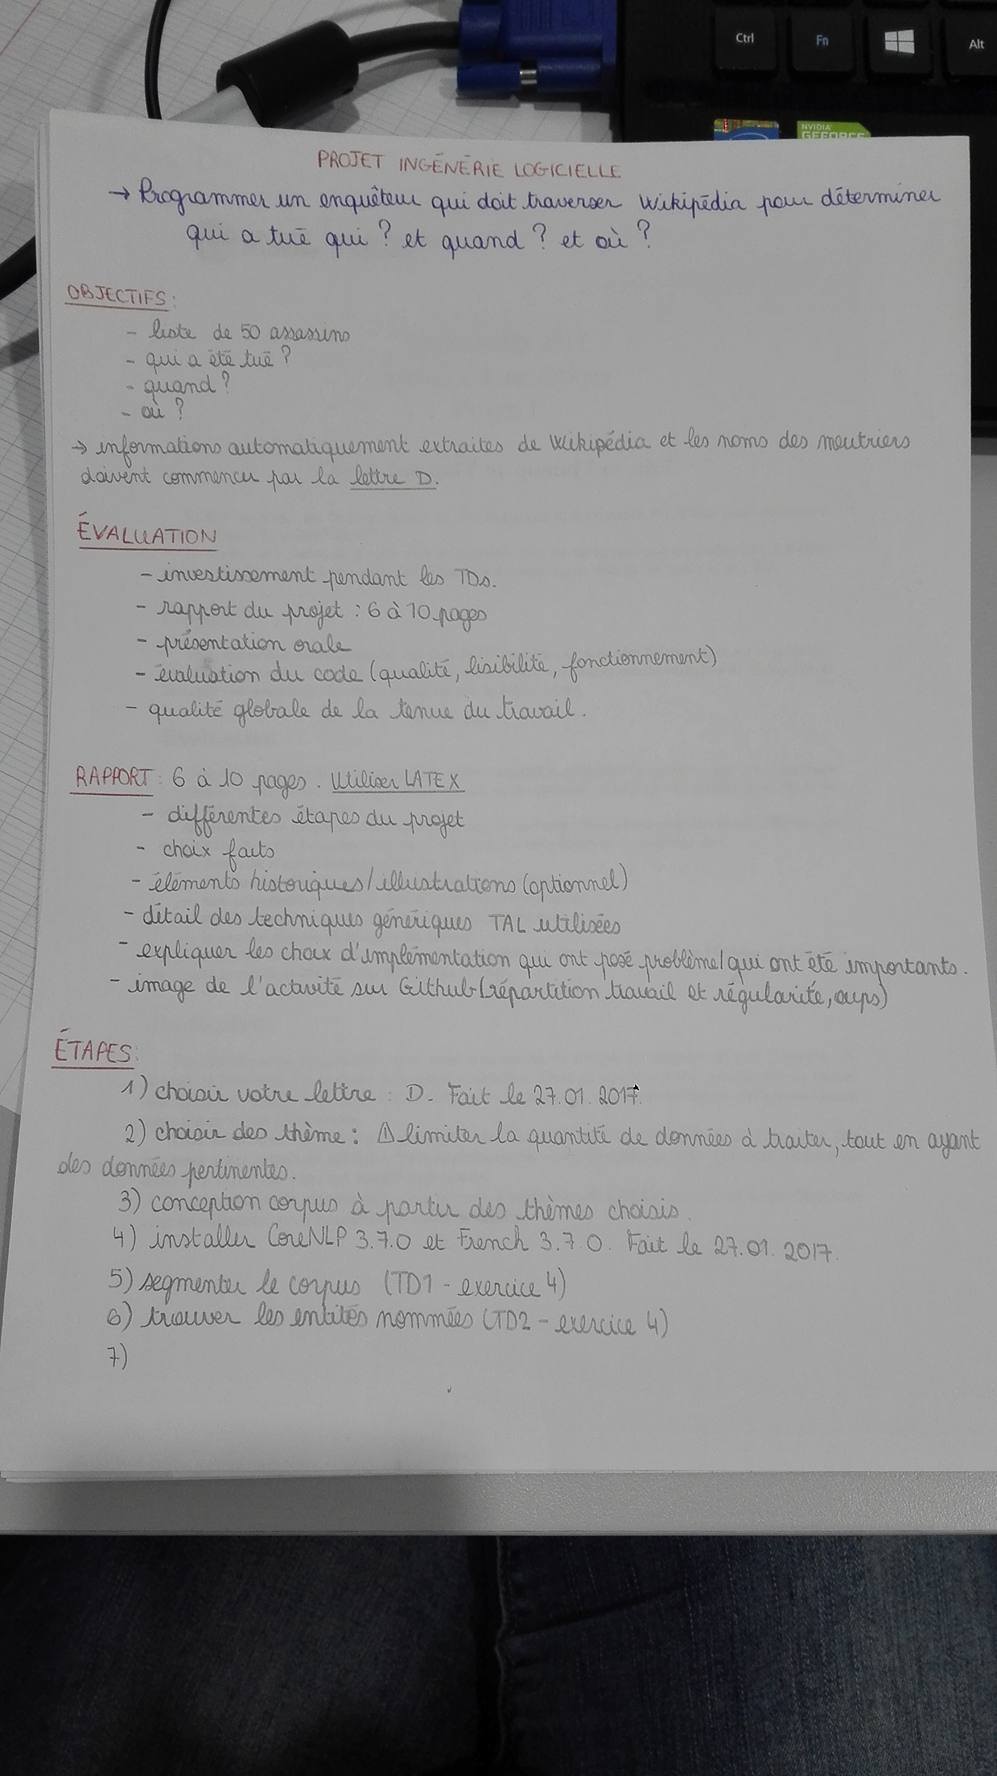 Ctrl
Fn
Alt
NVIDIA
GEFORCE
PROJET INGÉNÉRIE LOGICIELLE
→ Programmer un enquêteur qui doit traverser Wikipédia pour déterminer
qui a tué qui ? et quand ? et où ?
OBJECTIFS :
- liste de 50 assassins
- qui a été tué ?
- quand ?
- où ?
→ informations automatiquement extraites de Wikipédia et les noms des meutriers
doivent commencer par la lettre D.
ÉVALUATION
- investissement pendant les TDs.
- rapport du projet : 6 à 10 pages
- présentation orale
- évaluation du code (qualité, lisibilité, fonctionnement)
- qualité globale de la tenue du travail.
RAPPORT : 6 à 10 pages. Utiliser LATEX
- différentes étapes du projet
- choix faits
- éléments historiques/illustrations (optionnel)
- détail des techniques génériques TAL utilisées
- expliquer les choix d'implémentation qui ont posé problème/qui ont été importants.
- image de l'activité sur Github (répartition travail et régularité, oups)
ÉTAPES :
1) choisir votre lettre : D. Fait le 27.01.2017.
2) choisir des thème : ⚠ limiter la quantité de données à traiter, tout en ayant
des données pertinentes.
3) conception corpus à partir des thèmes choisis.
4) installer CoreNLP 3.7.0 et French 3.7.0. Fait le 27.01.2017.
5) segmenter le corpus (TD1 - exercice 4)
6) trouver les entités nommées (TD2 - exercice 4)
7)